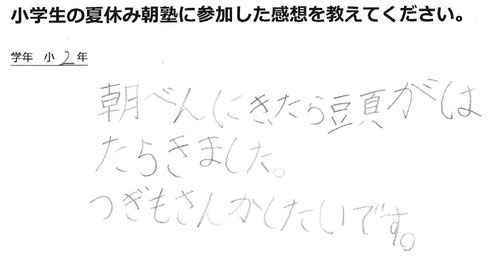 小学生の夏休み朝塾に参加した感想を教えてください。
学年 小 2 年
朝べんにきたら頭がは
たらきました。
つぎもさんかしたいです。